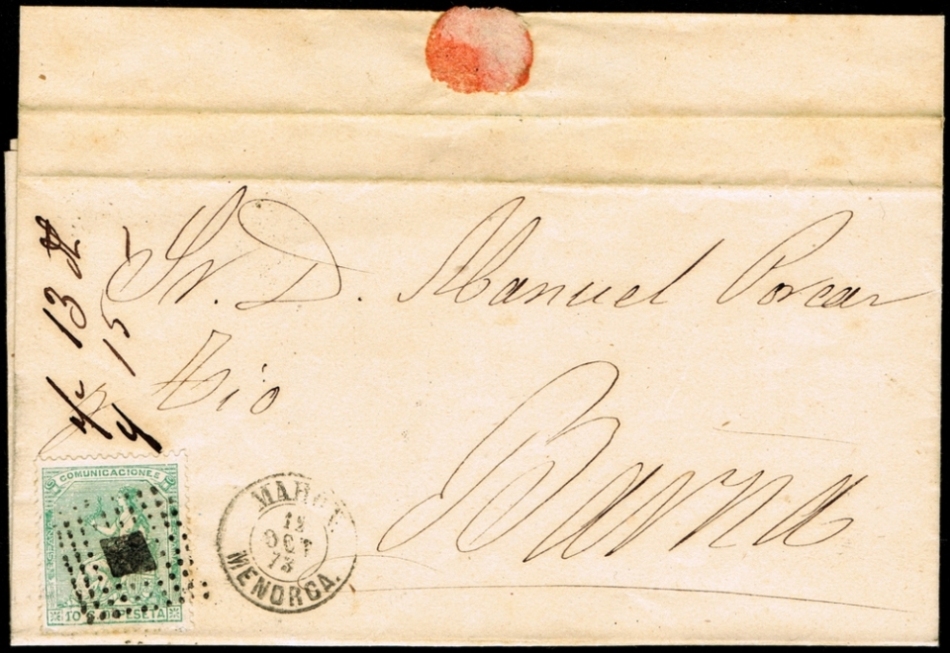 Sr. D. Manuel Porcar
y Tio
Barna
13
y 15
COMUNICACIONES
10 C. D PESETA
MAHON
OCT
73
MENORCA.